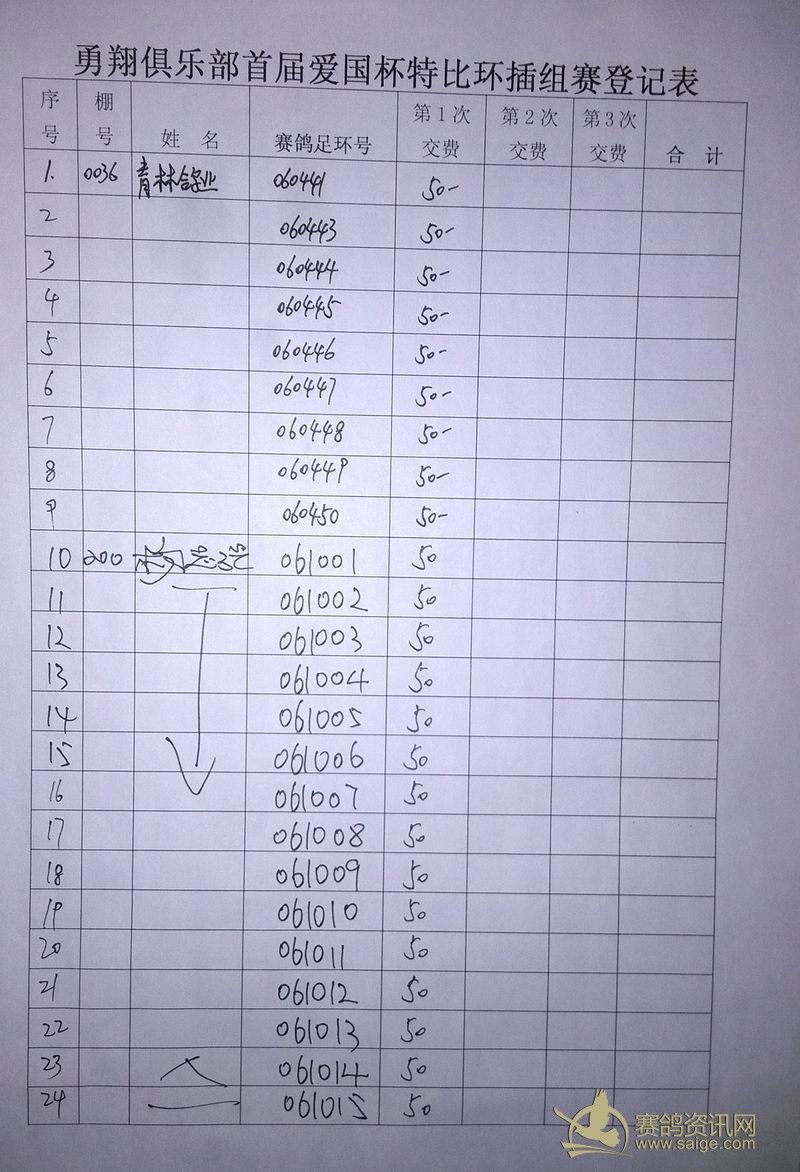 勇翔俱乐部首届爱国杯特比环插组赛登记表
序号 棚号 姓 名 赛鸽足环号 第1次交费 第2次交费 第3次交费 合 计
1. 0036 青林鸽业 060441 50-
2 060443 50-
3 060444 50-
4 060445 50-
5 060446 50-
6 060447 50-
7 060448 50-
8 060449 50-
9 060450 50-
10 200 061001 50
11 061002 50
12 061003 50
13 061004 50
14 061005 50
15 061006 50
16 061007 50
17 061008 50
18 061009 50
19 061010 50
20 061011 50
21 061012 50
22 061013 50
23 061014 50
24 061015 50
赛鸽资讯网
www.saige.com